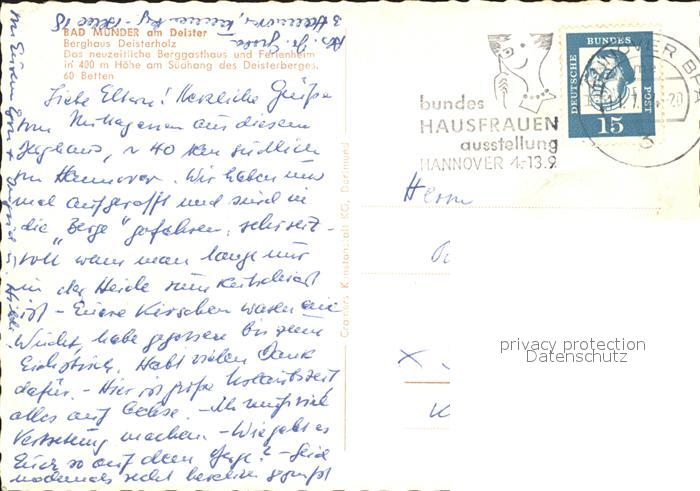 BAD MÜNDER am Deister
Berghaus Deisterholz
Das neuzeitliche Berggasthaus und Ferienheim
in 400 m Höhe am Südhang des Deisterberges.
60 Betten
Liebe Eltern! Herzliche Grüße
vom aus diesem
~ 40 km südlich
von Hannover. Wir haben uns
mal aufgerafft und sind in
die "Berge" gefahren, sehr reiz-
voll wenn man lange nur
in der Heide
ist - Eure Kirschen waren eine
Wucht, habe gegessen bis zum
Habt vielen Dank
dafür. - Hier ist große Urlaubszeit
alles auf Achse. - Ich muß viel
Vertretung machen. - Wie geht es
Euch so auf dem Berge? - Seid
nochmals recht herzlich gegrüßt
Cramers Kunstanstalt KG, Dortmund
bundes
HAUSFRAUEN
ausstellung
HANNOVER 4.-13.9.
DEUTSCHE BUNDES POST
15
HANNOVER
-20
3
Herrn
privacy protection
Datenschutz